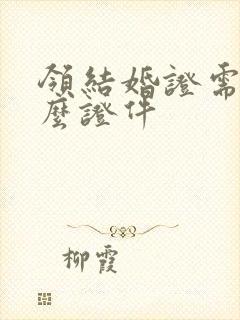 領結婚證需
麼證件
柳霞